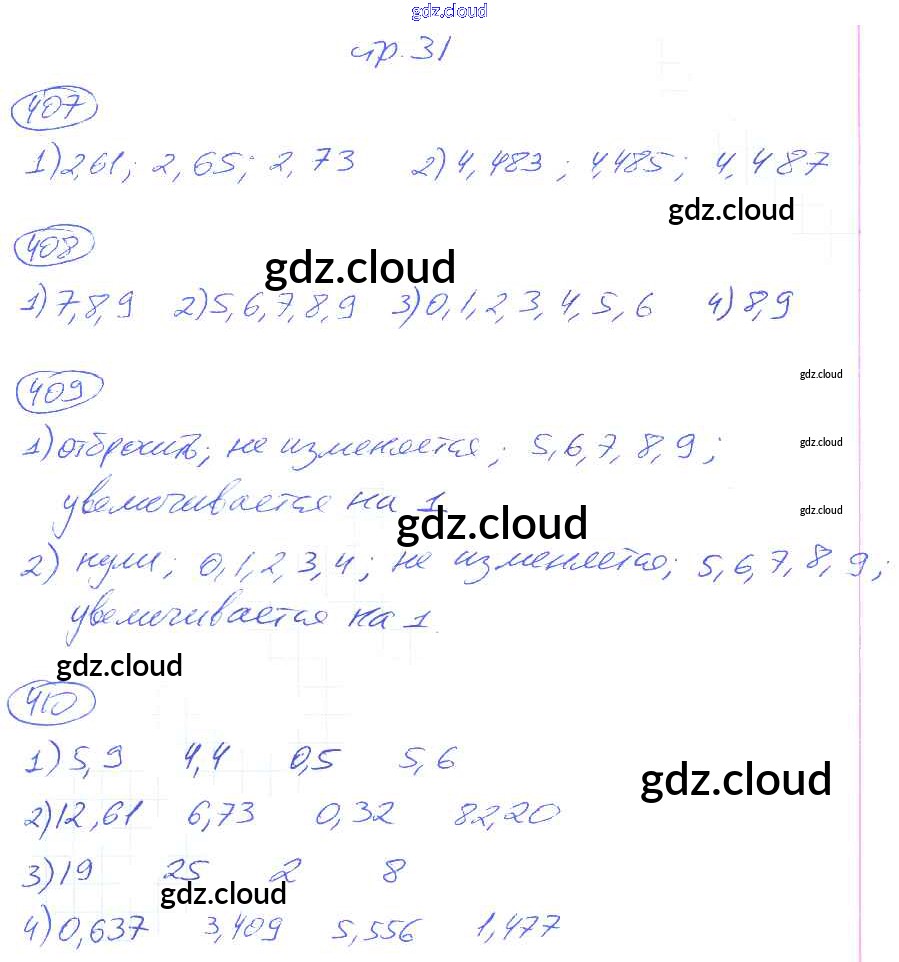 gdz.cloud
стр. 31
407
1) 2,61; 2,65; 2,73 2) 4,483; 4,485; 4,487
gdz.cloud
408
gdz.cloud
1) 7,8,9 2) 5,6,7,8,9 3) 0,1,2,3,4,5,6 4) 8,9
409
gdz.cloud
1) отбросить; не изменяется; 5,6,7,8,9;
gdz.cloud
увеличивается на 1.
gdz.cloud
gdz.cloud
2) нули; 0,1,2,3,4; не изменяется; 5,6,7,8,9;
увеличивается на 1.
gdz.cloud
410
1) 5,9 4,4 0,5 5,6
gdz.cloud
2) 12,61 6,73 0,32 82,20
3) 19 25 2 8
gdz.cloud
4) 0,637 3,409 5,556 1,477